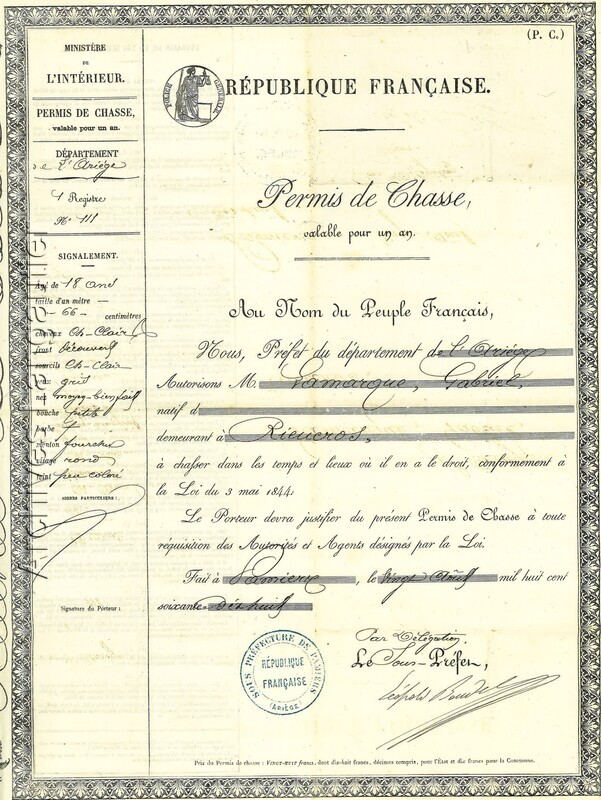 (P. C.)
MINISTÈRE
DE
L'INTÉRIEUR.
PERMIS DE CHASSE,
valable pour un an.
DÉPARTEMENT
de l'Ariége
1 Registre
N° 111
SIGNALEMENT.
Agé de 18 ans
taille d'un mètre
66 centimètres
cheveux Ch-Clair
front découvert
sourcils Ch-Clair
yeux gris
nez moy-bienfait
bouche petite
barbe
menton fourchu
visage rond
teint peu coloré
SIGNES PARTICULIERS :
Signature du Porteur :
POLICE GÉNÉRALE
RÉPUBLIQUE FRANÇAISE.
Permis de Chasse,
valable pour un an.
Au Nom du Peuple Français,
Nous, Préfet du département de l'Ariége
Autorisons M. Lamarque, Gabriel,
natif d
demeurant à Rieucros,
à chasser dans les temps et lieux où il en a le droit, conformément à
la Loi du 3 mai 1844.
Le Porteur devra justifier du présent Permis de Chasse à toute
réquisition des Autorités et Agents désignés par la Loi.
Fait à Pamiers, le vingt Août mil huit cent
soixante-dix huit
Par Délégation,
Le Sous-Préfet,
Léopold
SOUS PRÉFECTURE DE PAMIERS
RÉPUBLIQUE
FRANÇAISE
(ARIÈGE)
Prix du Permis de chasse : VINGT-HUIT francs, dont dix-huit francs, décimes compris, pour l'État et dix francs pour la Commune.